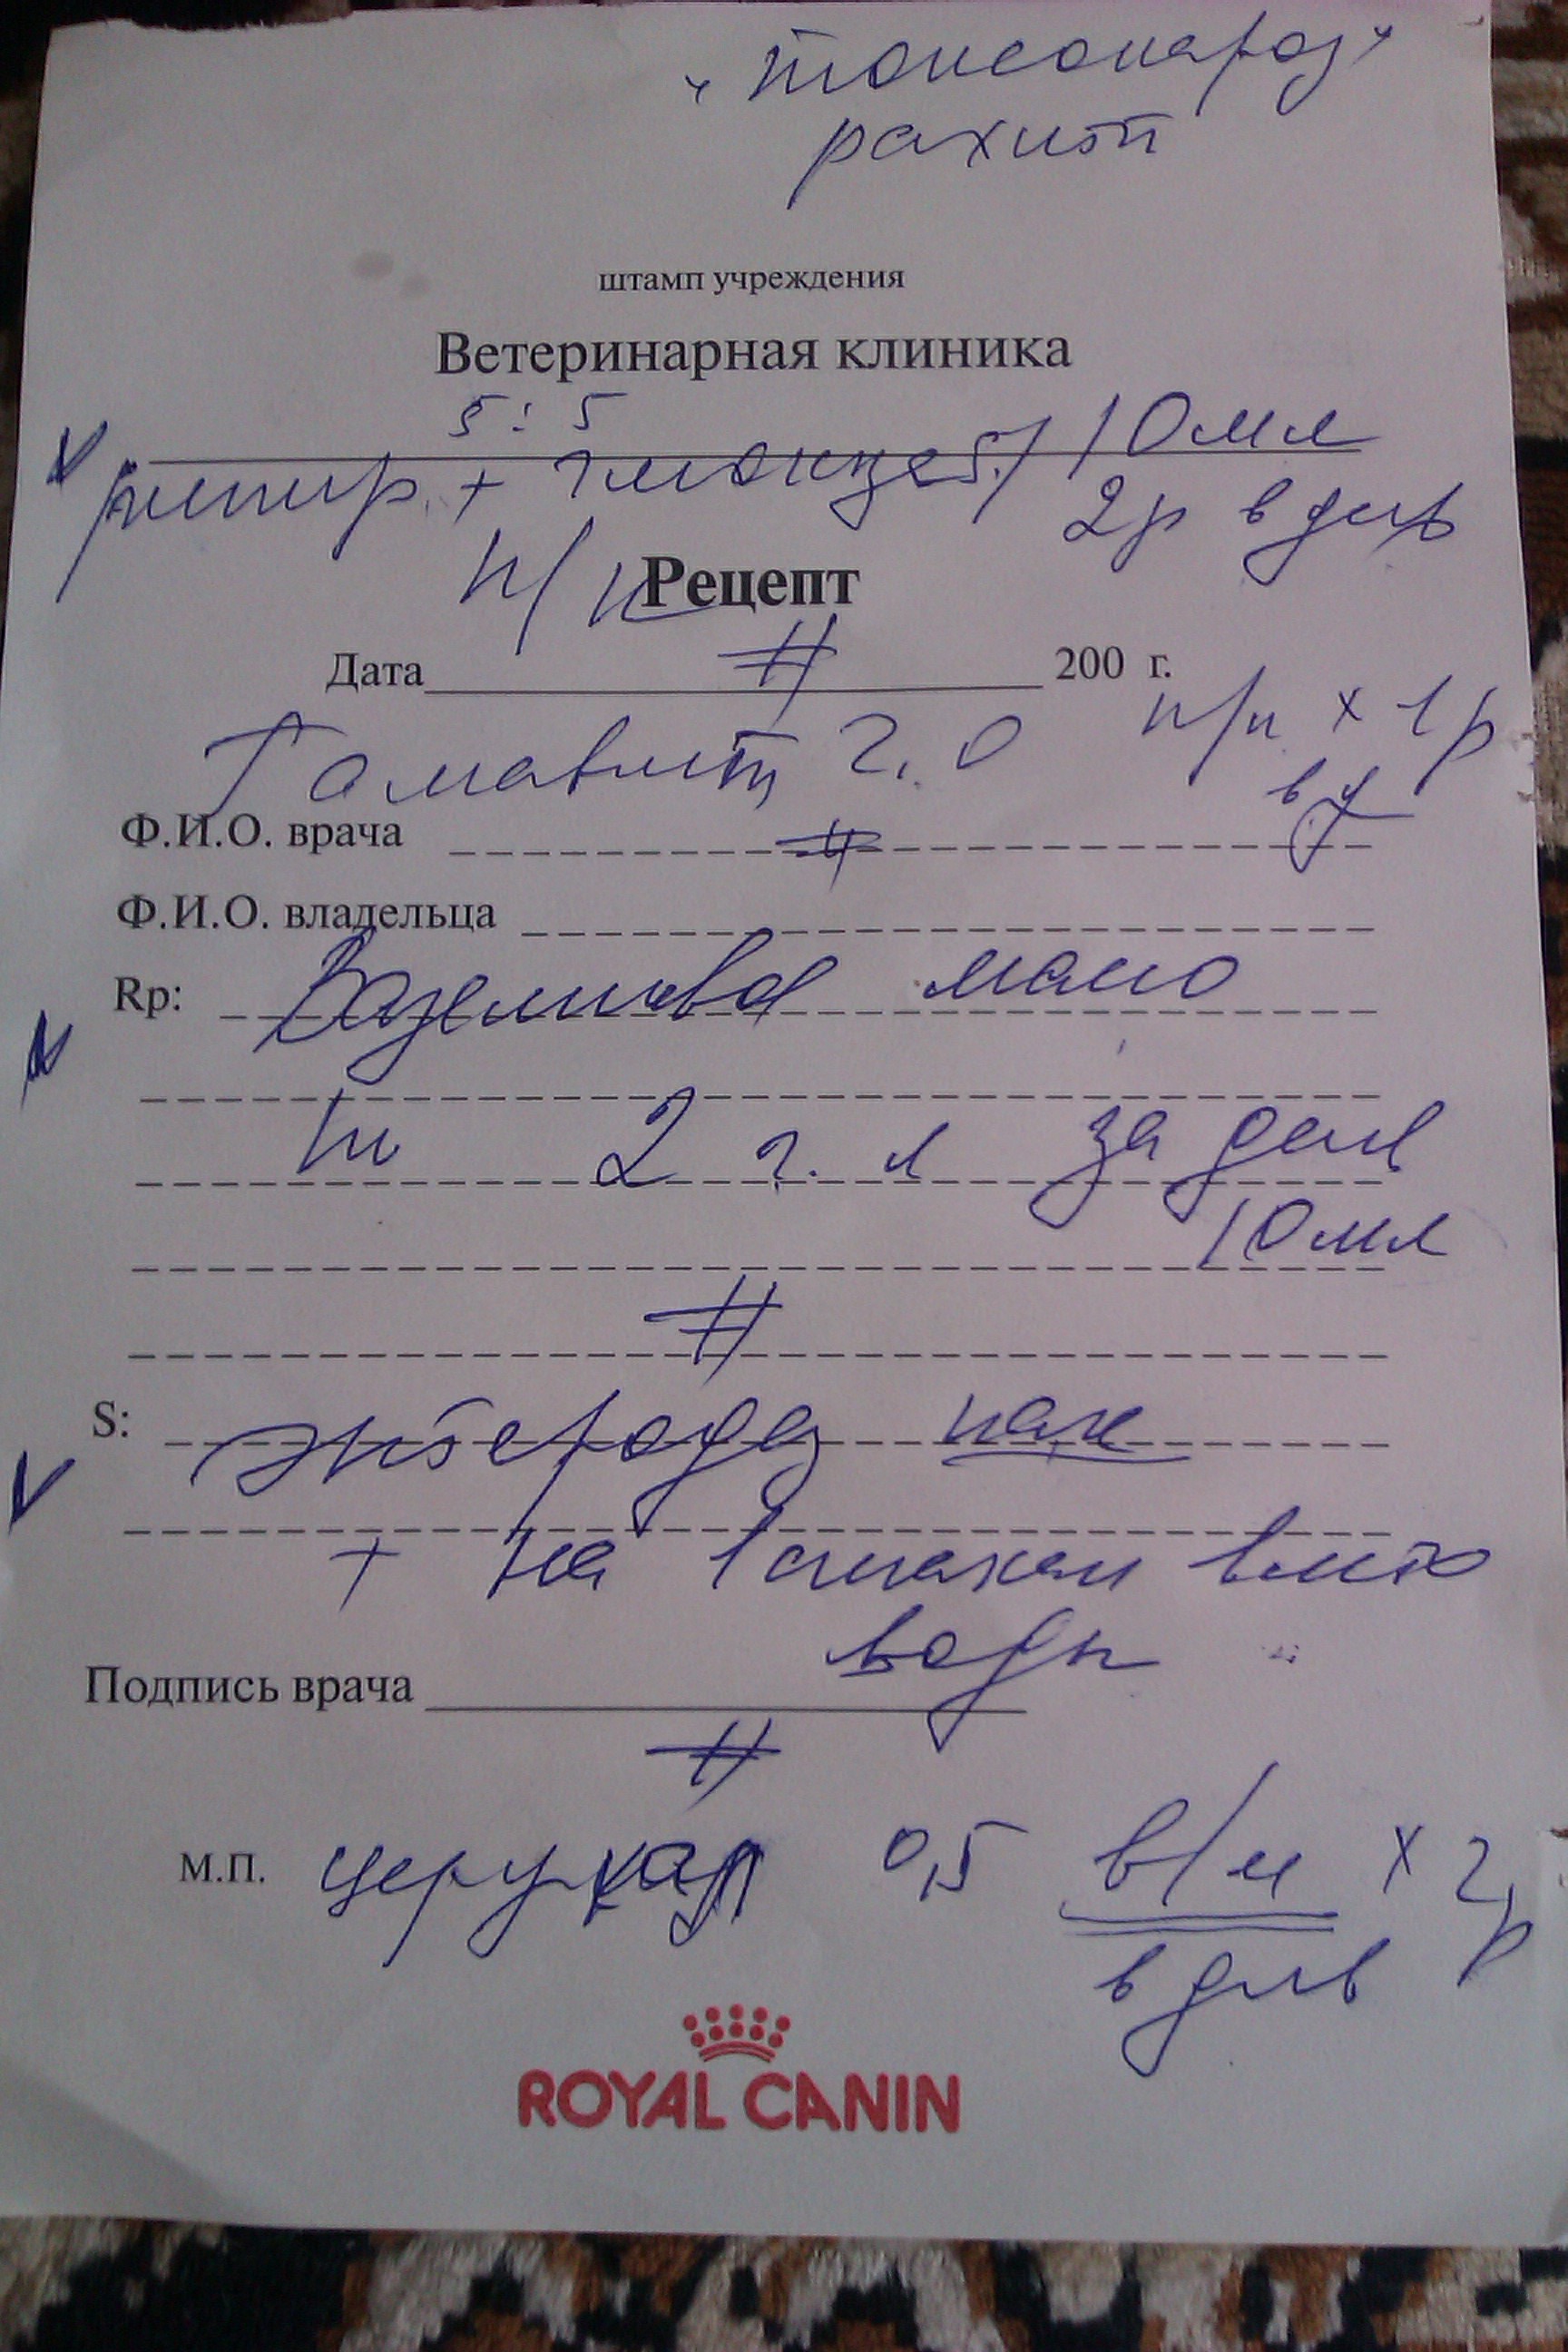 „токсокароз"
рахит
штамп учреждения
Ветеринарная клиника
5 : 5
+ глюкоза 5% 10 мл
п/к 2р в день
Рецепт
Дата 200 г.
Гамавит 2,0 п/к х 1р
в д
Ф.И.О. врача
Ф.И.О. владельца
Rp: Вазелиновое масло
по 2 ч. л за день
10 мл
S: энтеродез пак
+ на 1 стакан
воды
Подпись врача
М.П. церукал 0,5 в/м х 2р
в день
ROYAL CANIN